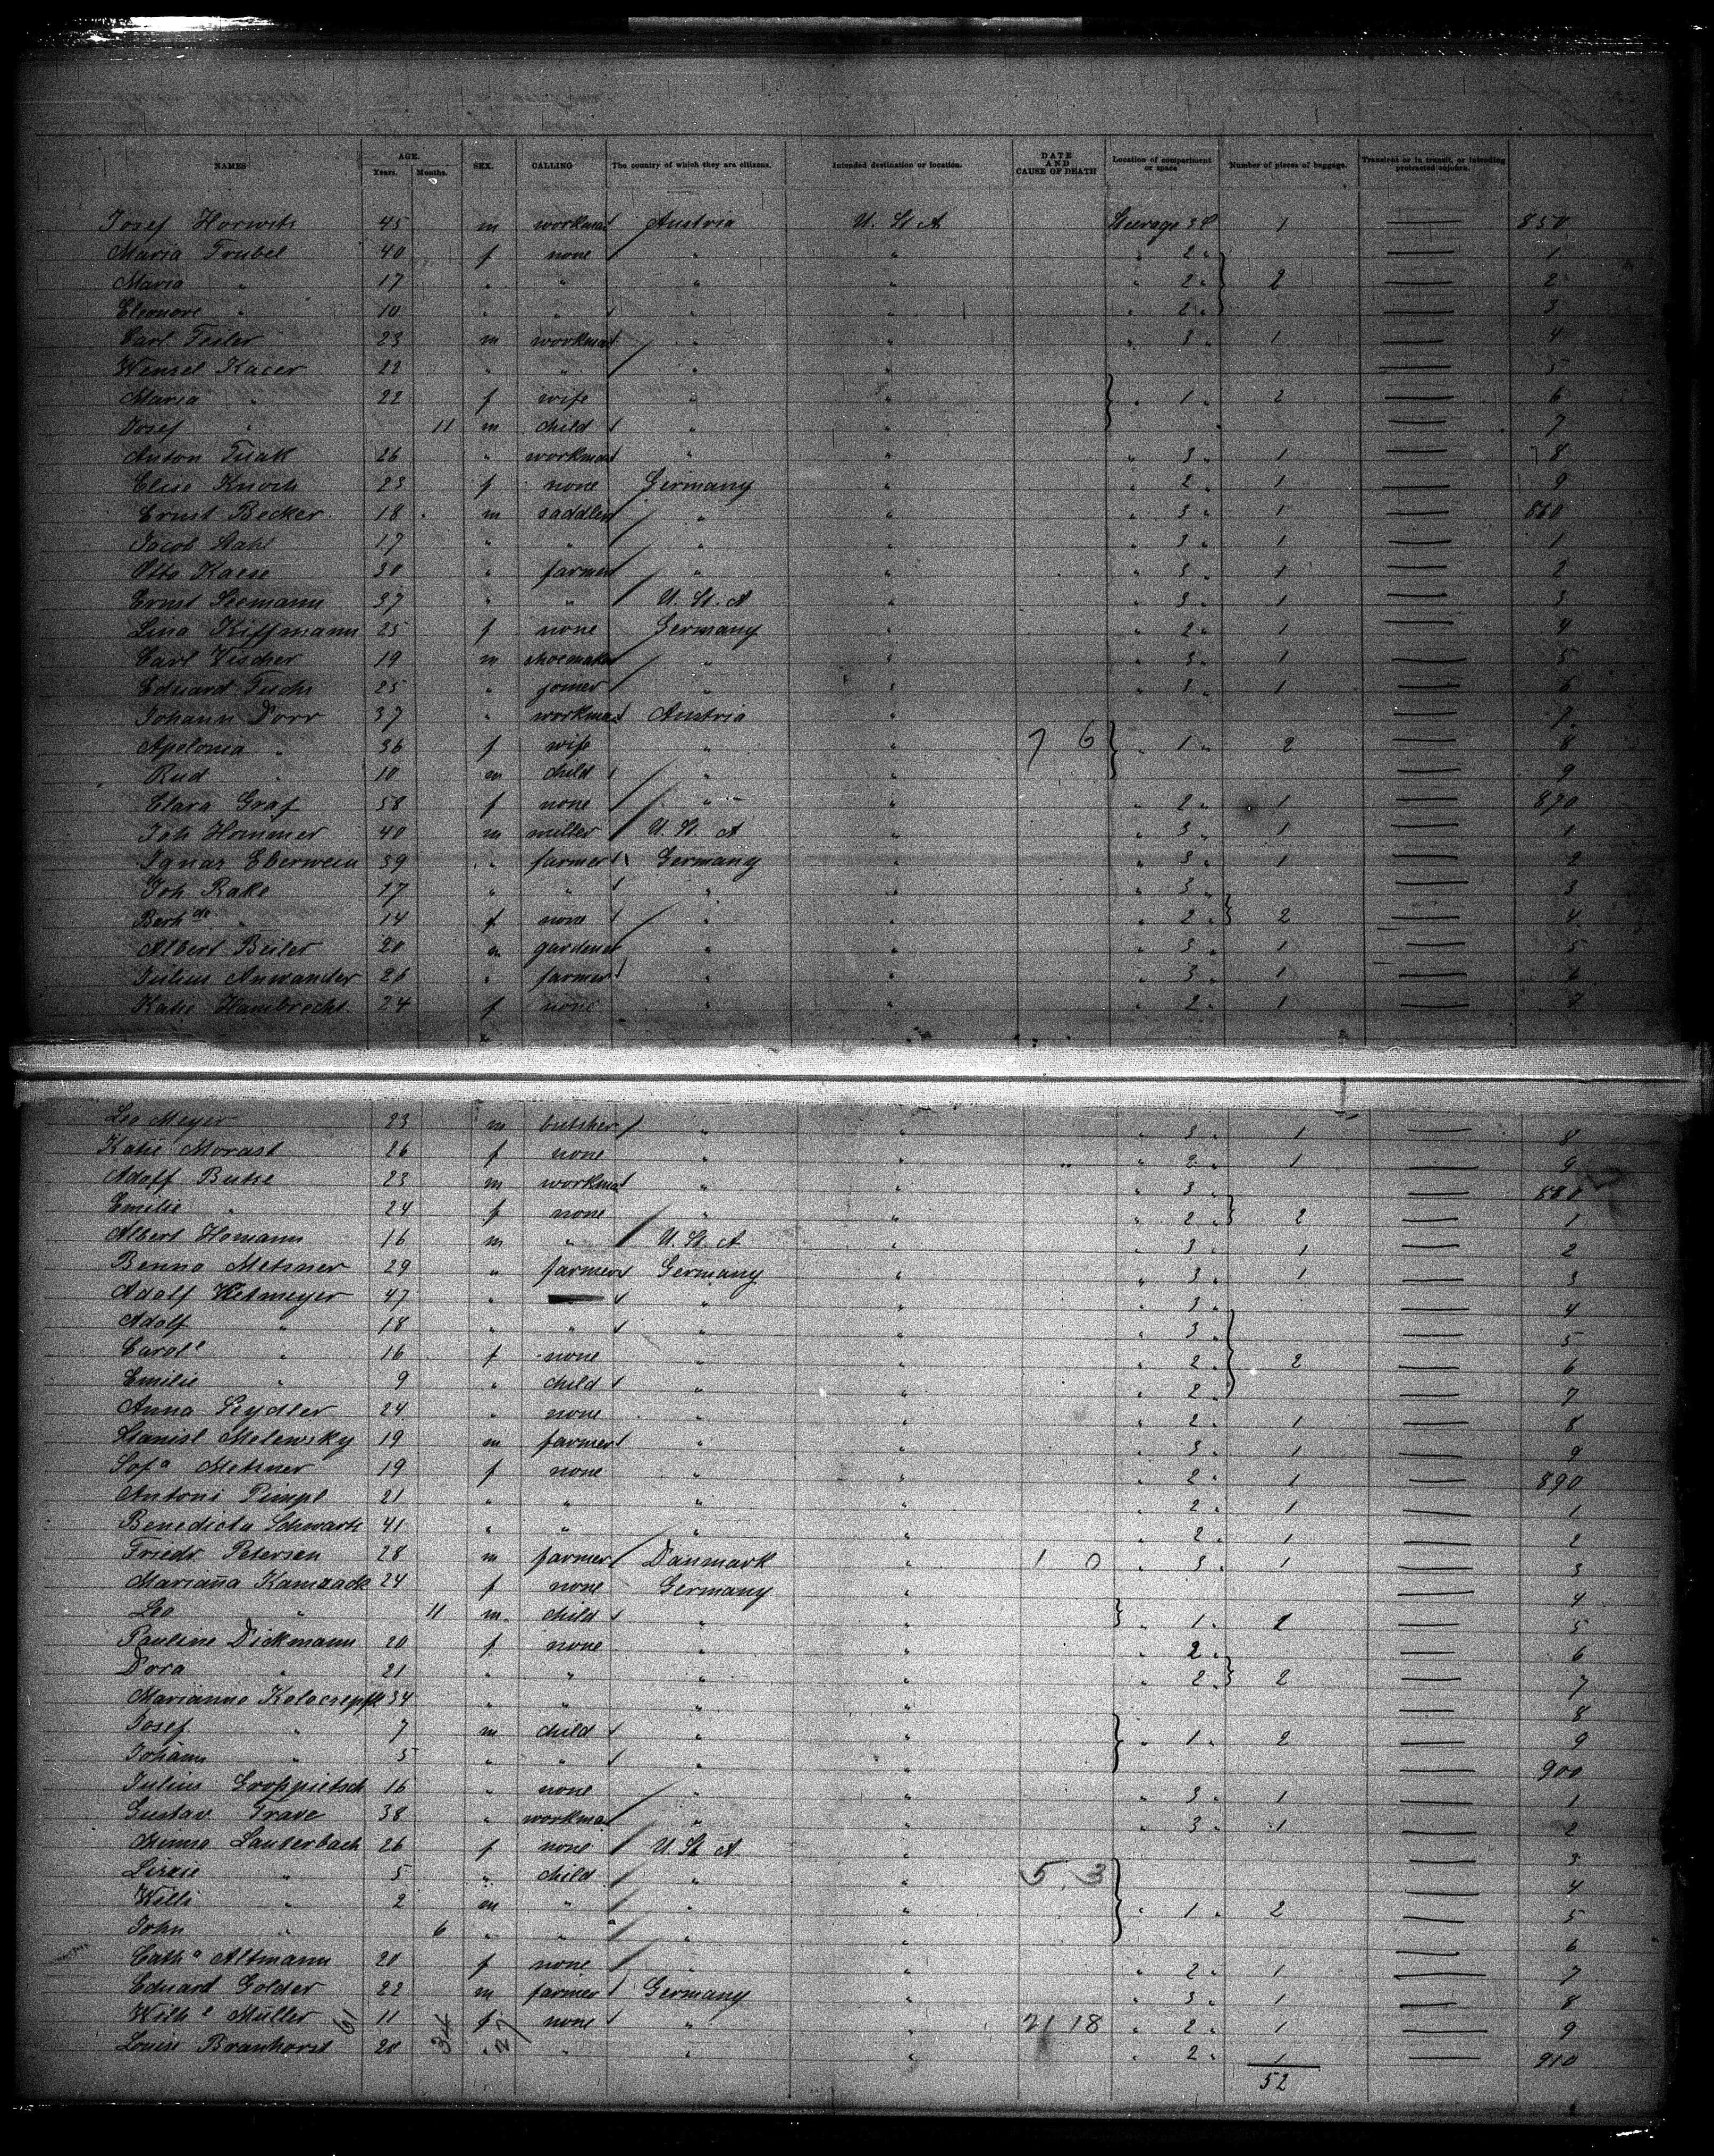 NAMES AGE. Years. Months. SEX. CALLING The country of which they are citizens. Intended destination or location. DATE AND CAUSE OF DEATH Location of compartment or space Number of pieces of baggage. Transient or in transit, or intending protracted sojourn.
Josef Horwitz 45 m workman Austria U. St. A Steerage 3 1 — 850
Maria Trubel 40 f none " " " 2 " — 1
Maria " 17 " " " " " 2 " 2 — 2
Eleonore " 10 " " " " " 2 " — 3
Carl Feiler 23 m workman " " " 3 " 1 — 4
Wenzel Kacer 22 " " " " — 5
Maria " 22 f wife " " " 1 " 2 — 6
Josef " 11 m child " " — 7
Anton 26 " workman " " " 3 " 1 — 8
Elise Knoch 23 f none Germany " " 2 " 1 — 9
Ernst Becker 18 m saddler " " " 3 " 1 — 860
Jacob Stahl 17 " " " " " 3 " 1 — 1
Otto Kaese 30 " farmer " " " 3 " 1 — 2
Ernst Seemann 37 " " U. St. A " " 3 " 1 — 3
Lina Kiffmann 25 f none Germany " " 2 " 1 — 4
Carl Vischer 19 m shoemaker " " " 3 " 1 — 5
Eduard Fuchs 25 " joiner " " " 3 " 1 — 6
Johann Dorr 37 " workman Austria " — 7
Apolonia " 36 f wife " " 7 6 " 1 " 2 — 8
Rud " 10 m child " " — 9
Clara Graf 58 f none " " " 2 " 1 — 870
Joh Hommer 40 m miller U. St. A " " 3 " 1 — 1
Ignaz Eberwein 39 " farmer Germany " " 3 " 1 — 2
Joh Rake 17 " " " " " 3 " — 3
Berh de " 14 f none " " " 2 " 2 — 4
Albert Beiler 20 m gardener " " " 3 " 1 — 5
Julius Anwander 26 " farmer " " " 3 " 1 — 6
Katie Hambrecht 24 f none " " " 2 " 1 — 7
Leo Meyer 23 m butcher " " " 3 " 1 — 8
Katie Morast 26 f none " " " " 2 " 1 — 9
Adolf Buhse 23 m workman " " " 3 " — 880
Emilie " 24 f none " " " 2 " 2 — 1
Albert Homann 16 m " U. St. A " " 3 " 1 — 2
Benno Metzner 29 " farmer Germany " " 3 " 1 — 3
Adolf Ketmeyer 47 " " " " 3 " — 4
Adolf " 18 " " " " " 3 " — 5
Carol e " 16 f none " " " 2 " 2 — 6
Emilie " 9 " child " " " 2 " — 7
Anna Seydler 24 " none " " " 2 " 1 — 8
Stanisl Melewsky 19 m farmer " " " 3 " 1 — 9
Sof a Metzner 19 f none " " " 2 " 1 — 890
Antoni Pimpl 21 " " " " " 2 " 1 — 1
Benedicta Schwartz 41 " " " " " 2 " 1 — 2
Friedr Petersen 28 m farmer Danmark " 1 0 " 3 " 1 — 3
Marianna 24 f none Germany " — 4
Leo " 11 m child " " " 1 " 2 — 5
Pauline Dickmann 20 f none " " " 2 " — 6
Dora " 21 " " " " " 2 " 2 — 7
Marianna 34 " " " " — 8
Josef " 7 m child " " " 1 " 2 — 9
Johann " 5 " " " " — 900
Julius Großpietsch 16 " none " " " 3 " 1 — 1
Gustav Trave 38 " workman " " " 3 " 1 — 2
Minna Lauterbach 26 f none U. St. A " — 3
Lizzie " 5 " child " " 5 3 — 4
Willi " 2 m " " " " 1 " 2 — 5
John " 6 " " " " — 6
Cath a Altmann 20 f none " " " 2 " 1 — 7
Eduard Golder 22 m farmer Germany " " 3 " 1 — 8
Wilh e Müller 61 11 34 f 27 none " " 21 18 " 2 " 1 — 9
Louise Branhorst 20 " " " " " 2 " 1 — 910
52